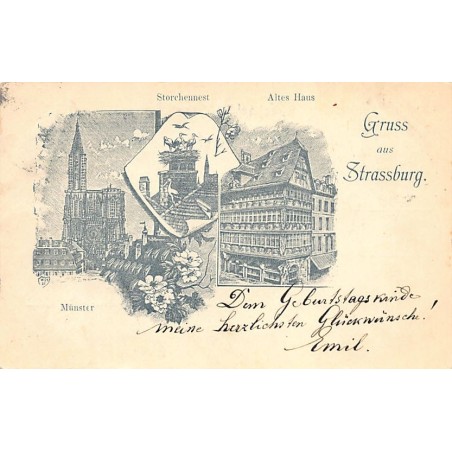 Storchennest
Altes Haus
Gruss
aus
Strassburg.
Münster
Dem Geburtstagskinde
meine herzlichsten Glückwünsche!
Emil.